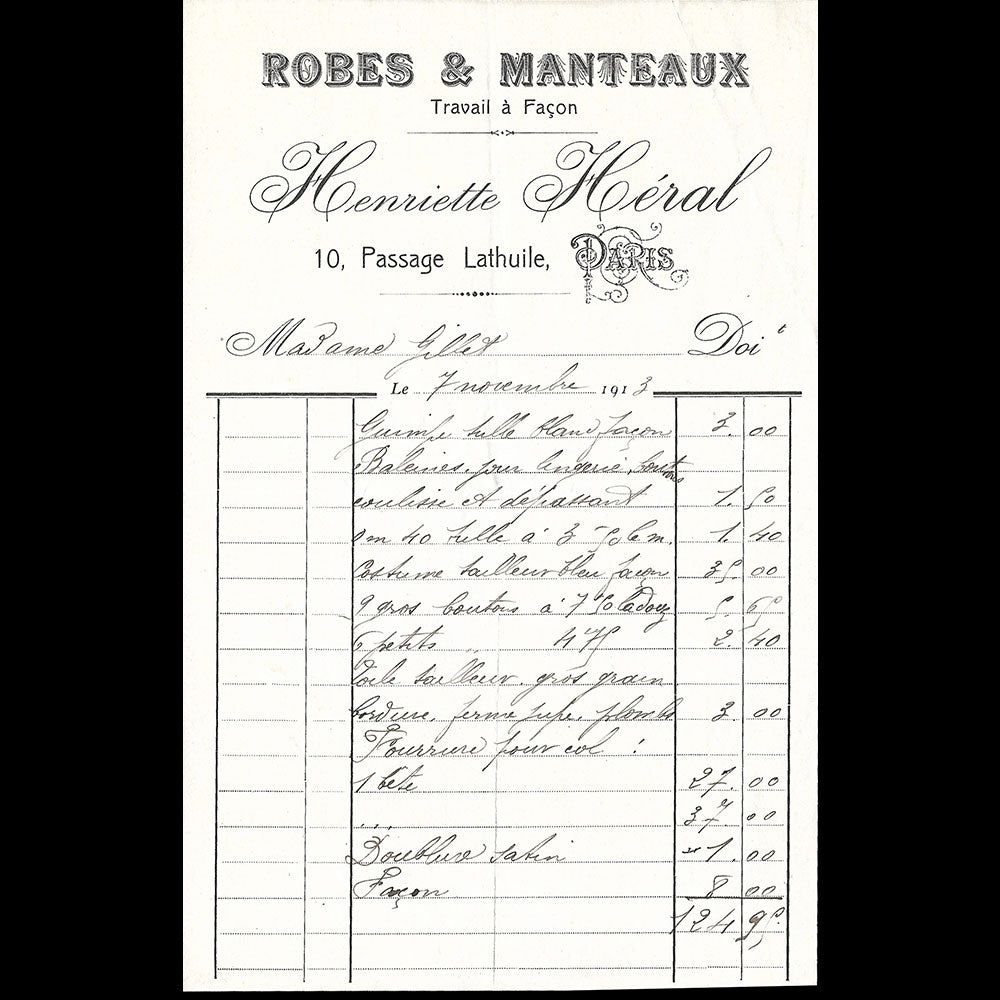 ROBES & MANTEAUX
Travail à Façon
Henriette Héral
10, Passage Lathuile, PARIS
Madame Gillet Doit
Le 7 novembre 1913
Guimpe tulle blanc façon 3. 00
Baleines, pour lingerie, boutons
coulisse et dépassant 1. 50
0m 40 tulle à 3 50 le m. 1. 40
Costume tailleur bleu façon 35. 00
9 gros boutons à 7 50 la douz 5. 65
6 petits " 4 75 2. 40
Toile tailleur, gros grain
bordure, ferme jupe, plombs 3. 00
Fourrure pour col :
1 bête 27. 00
37. 00
Doublure satin 1. 00
Façon 8 00
124 95